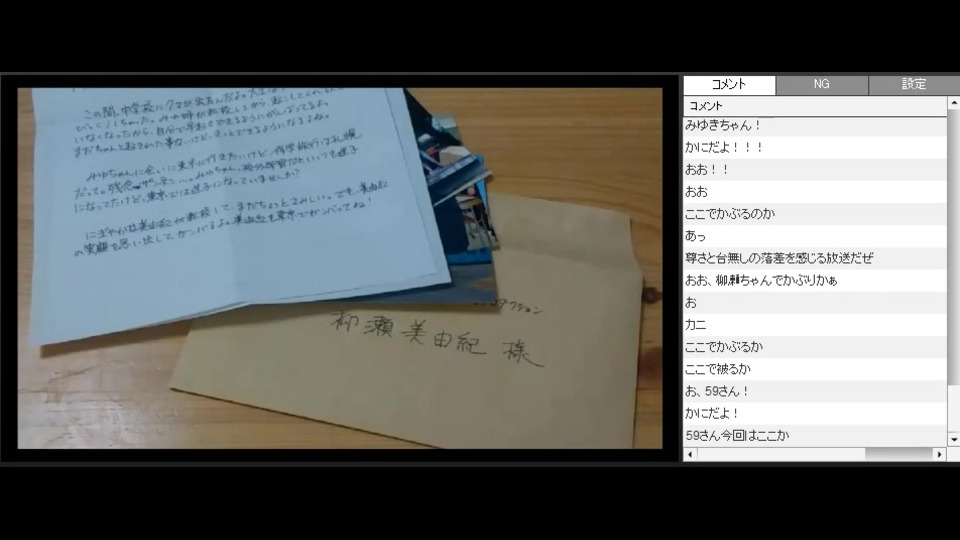 この間、中学校にクマが出たんだよ。
びっくりしちゃった。みゆ姉が転校してから、起こしてくれる人が
いなくなったから、自分で早起きできるようにがんばってるよ。
まだちゃんとおきれた事ないけど、きっとできるようになるよね。
みゆちゃんに会いに東京に行きたいけど、修学旅行は札幌
だって。残念
になってたけど、東京では迷子になっていませんか?
にぎやかな美由紀が転校して、まだちょっとさみしい。でも、美由紀
の笑顔を思い出してガンバるよ。美由紀も東京でガンバってね!
柳瀬美由紀 様
コメント
NG
設定
コメント
みゆきちゃん!
かにだよ!!!
おお!!
おお
ここでかぶるのか
あっ
尊さと台無しの落差を感じる放送だぜ
おお、柳瀬ちゃんでかぶりかぁ
お
カニ
ここでかぶるか
ここで被るか
お、59さん!
かにだよ!
59さん今回はここか